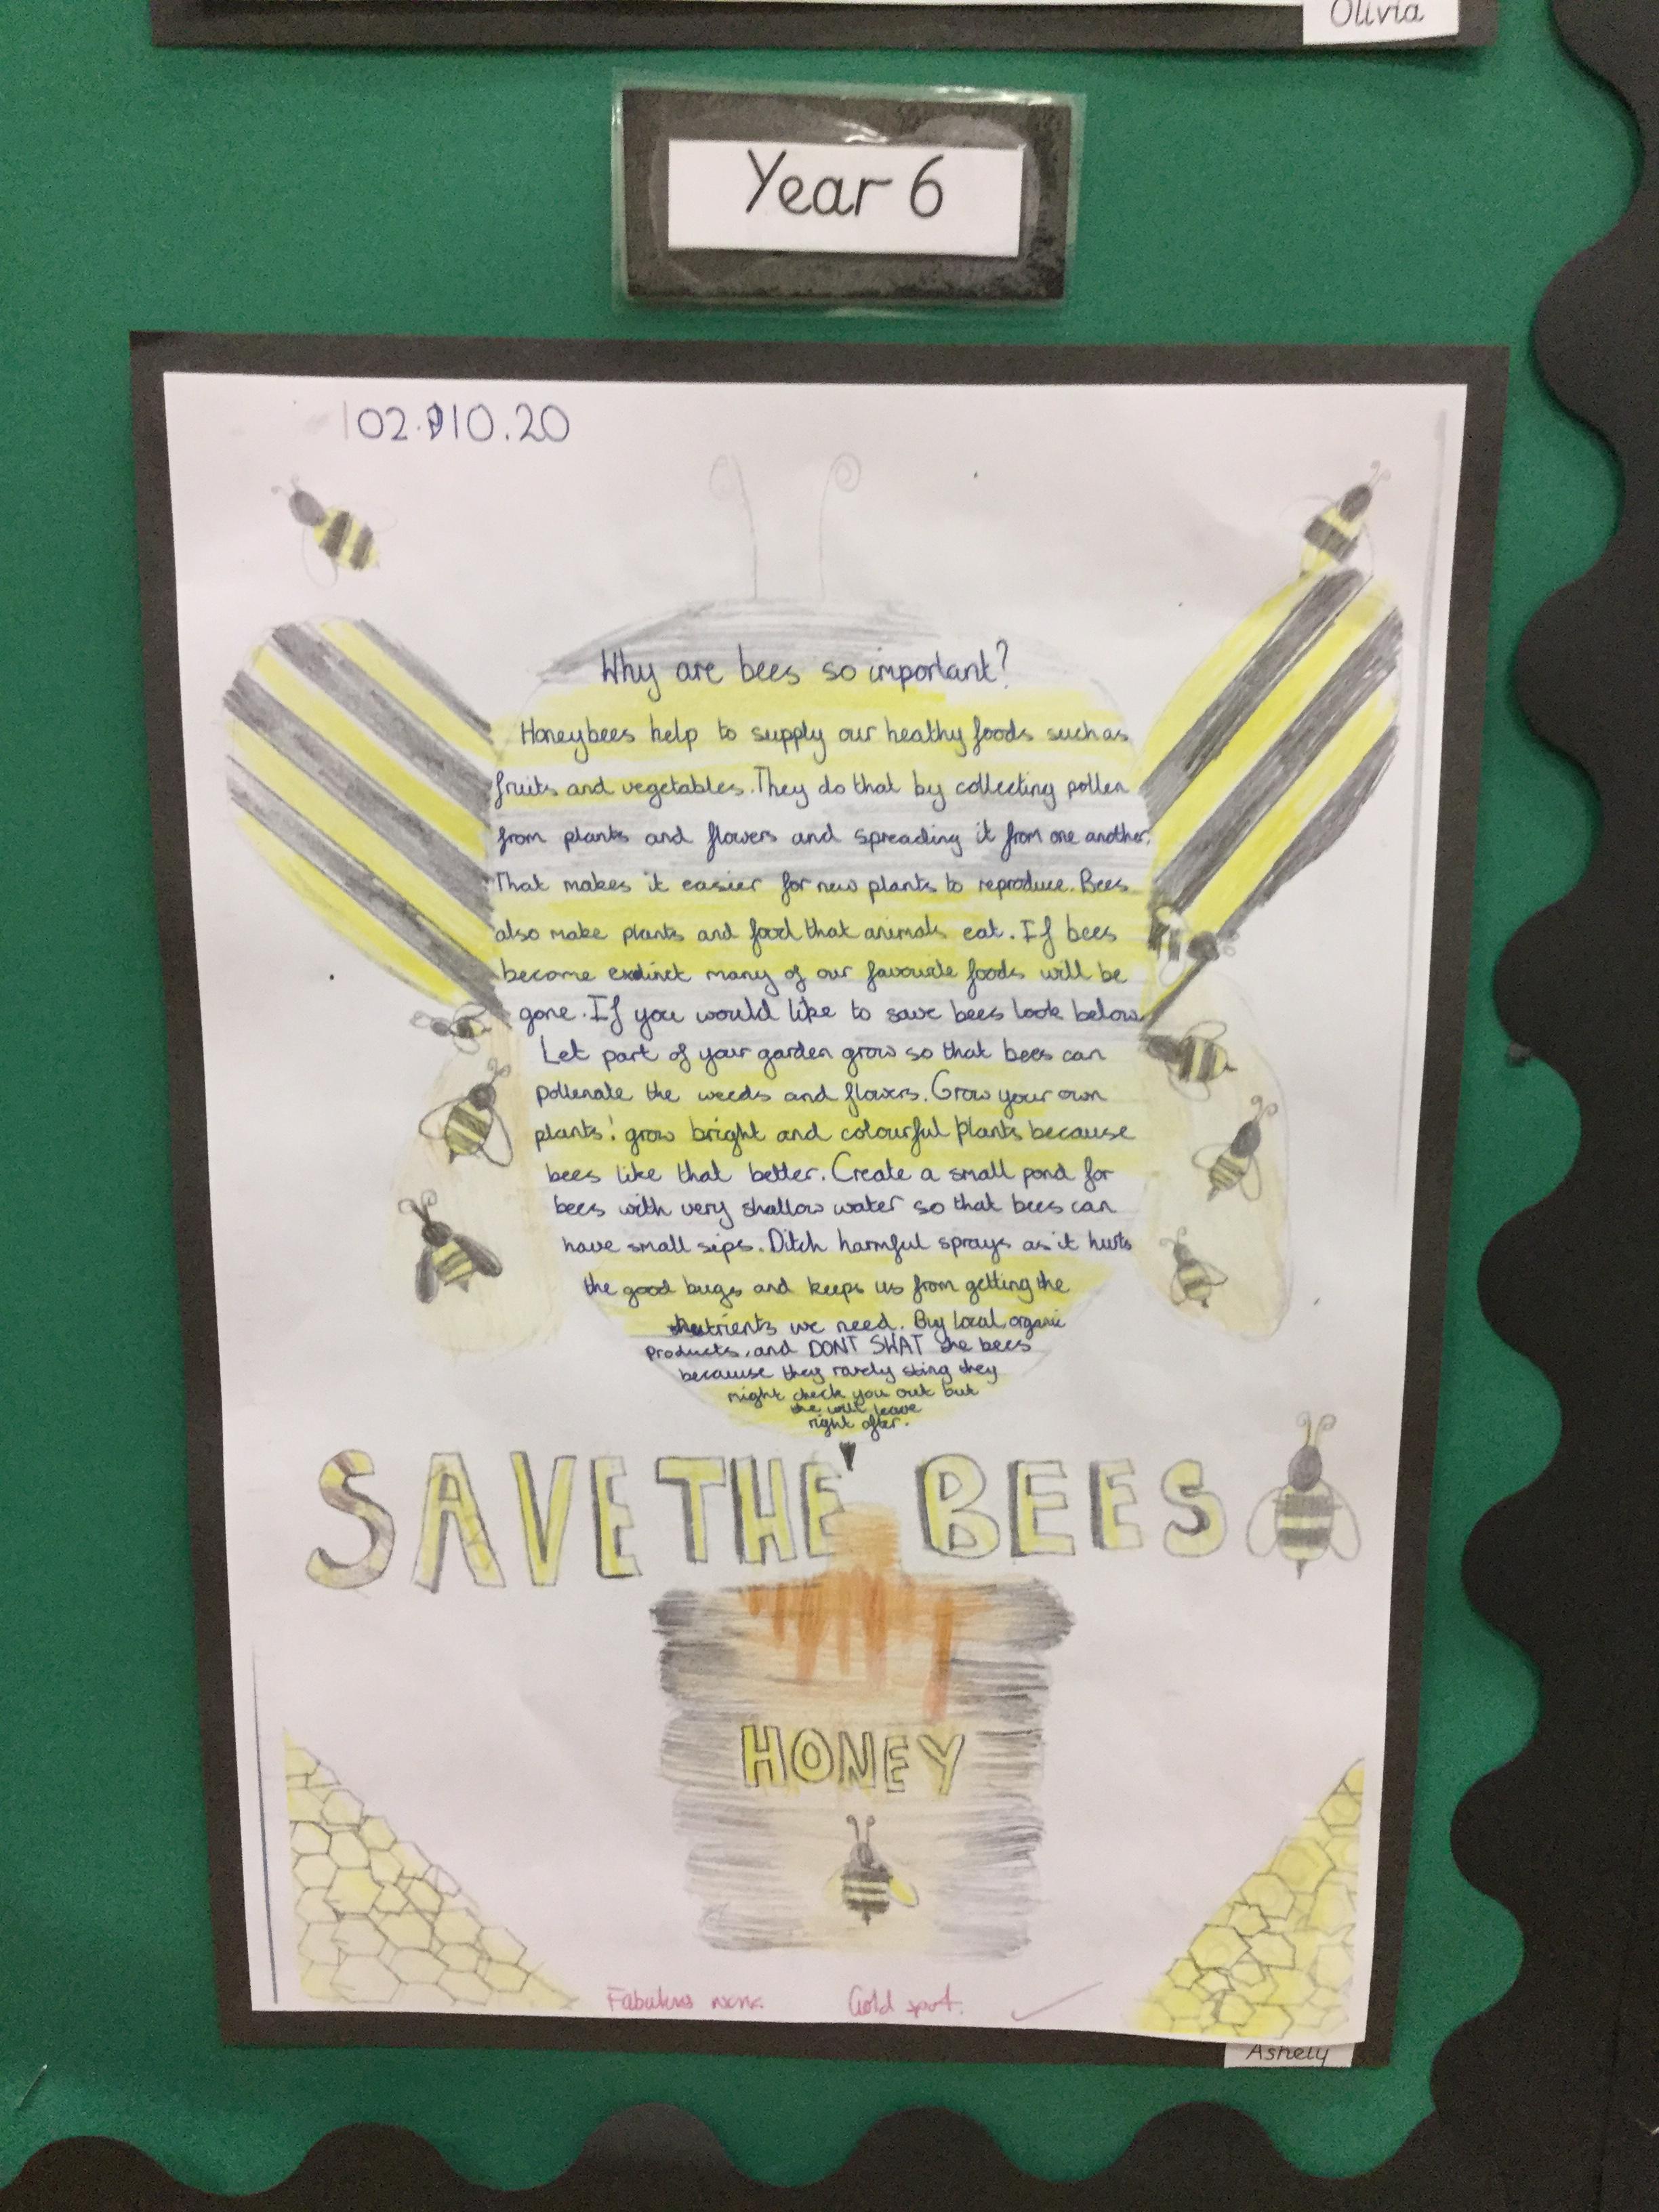 Olivia
Year 6
02.10.20
Why are bees so important?
Honeybees help to supply our healthy foods such as
fruits and vegetables. They do that by collecting pollen
from plants and flowers and spreading it from one another.
That makes it easier for new plants to reproduce. Bees
also make plants and food that animals eat. If bees
become exdinct many of our favourite foods will be
gone. If you would like to save bees look below.
Let part of your garden grow so that bees can
pollenate the weeds and flowers. Grow your own
plants! grow bright and colourful plants because
bees like that better. Create a small pond for
bees with very shallow water so that bees can
have small sips. Ditch harmful sprays as it hurts
the good bugs and keeps us from getting the
nutrients we need. Buy local organic
products, and DONT SWAT the bees
because they rarely sting they
might check you out but
she will leave
right after.
SAVE THE BEES
HONEY
Fabulous work. Gold spot.
Ashely